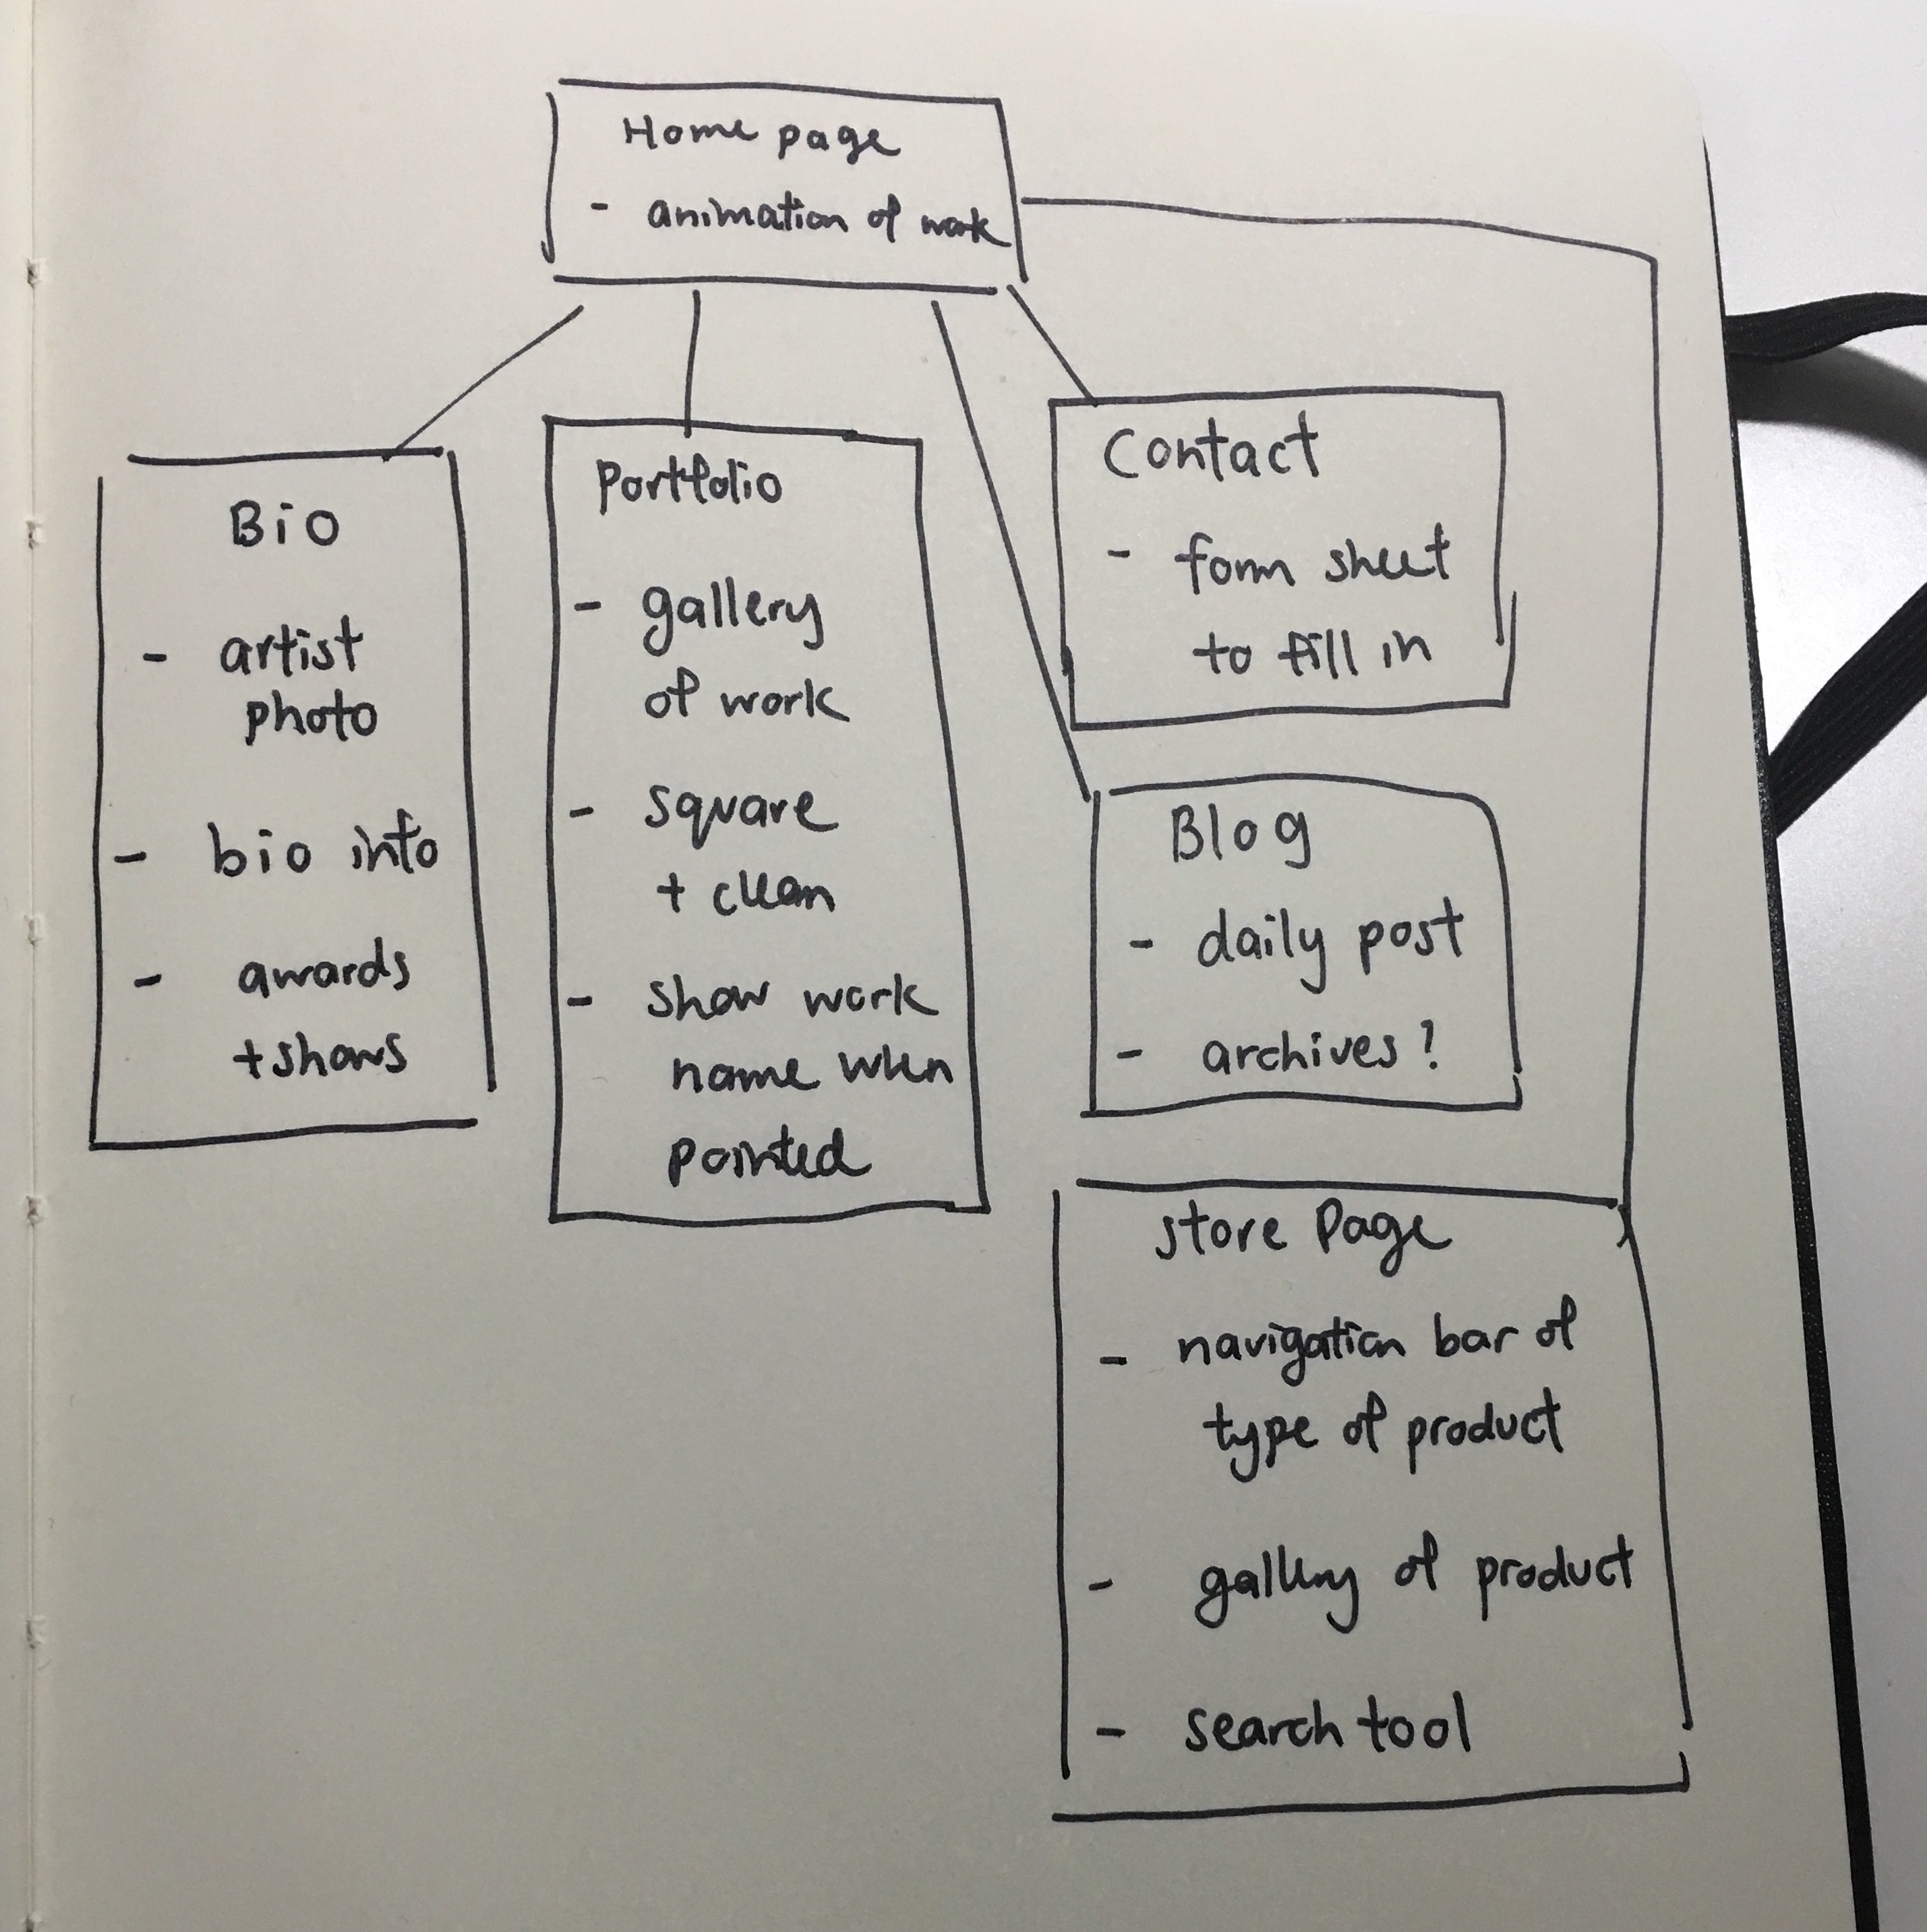 Home page
- animation of work
Bio
- artist
photo
- bio info
- awards
+ shows
Portfolio
- gallery
of work
- square
+ clean
- show work
name when
pointed
Contact
- form sheet
to fill in
Blog
- daily post
- archives?
Store Page
- navigation bar of
type of product
- gallery of product
- search tool